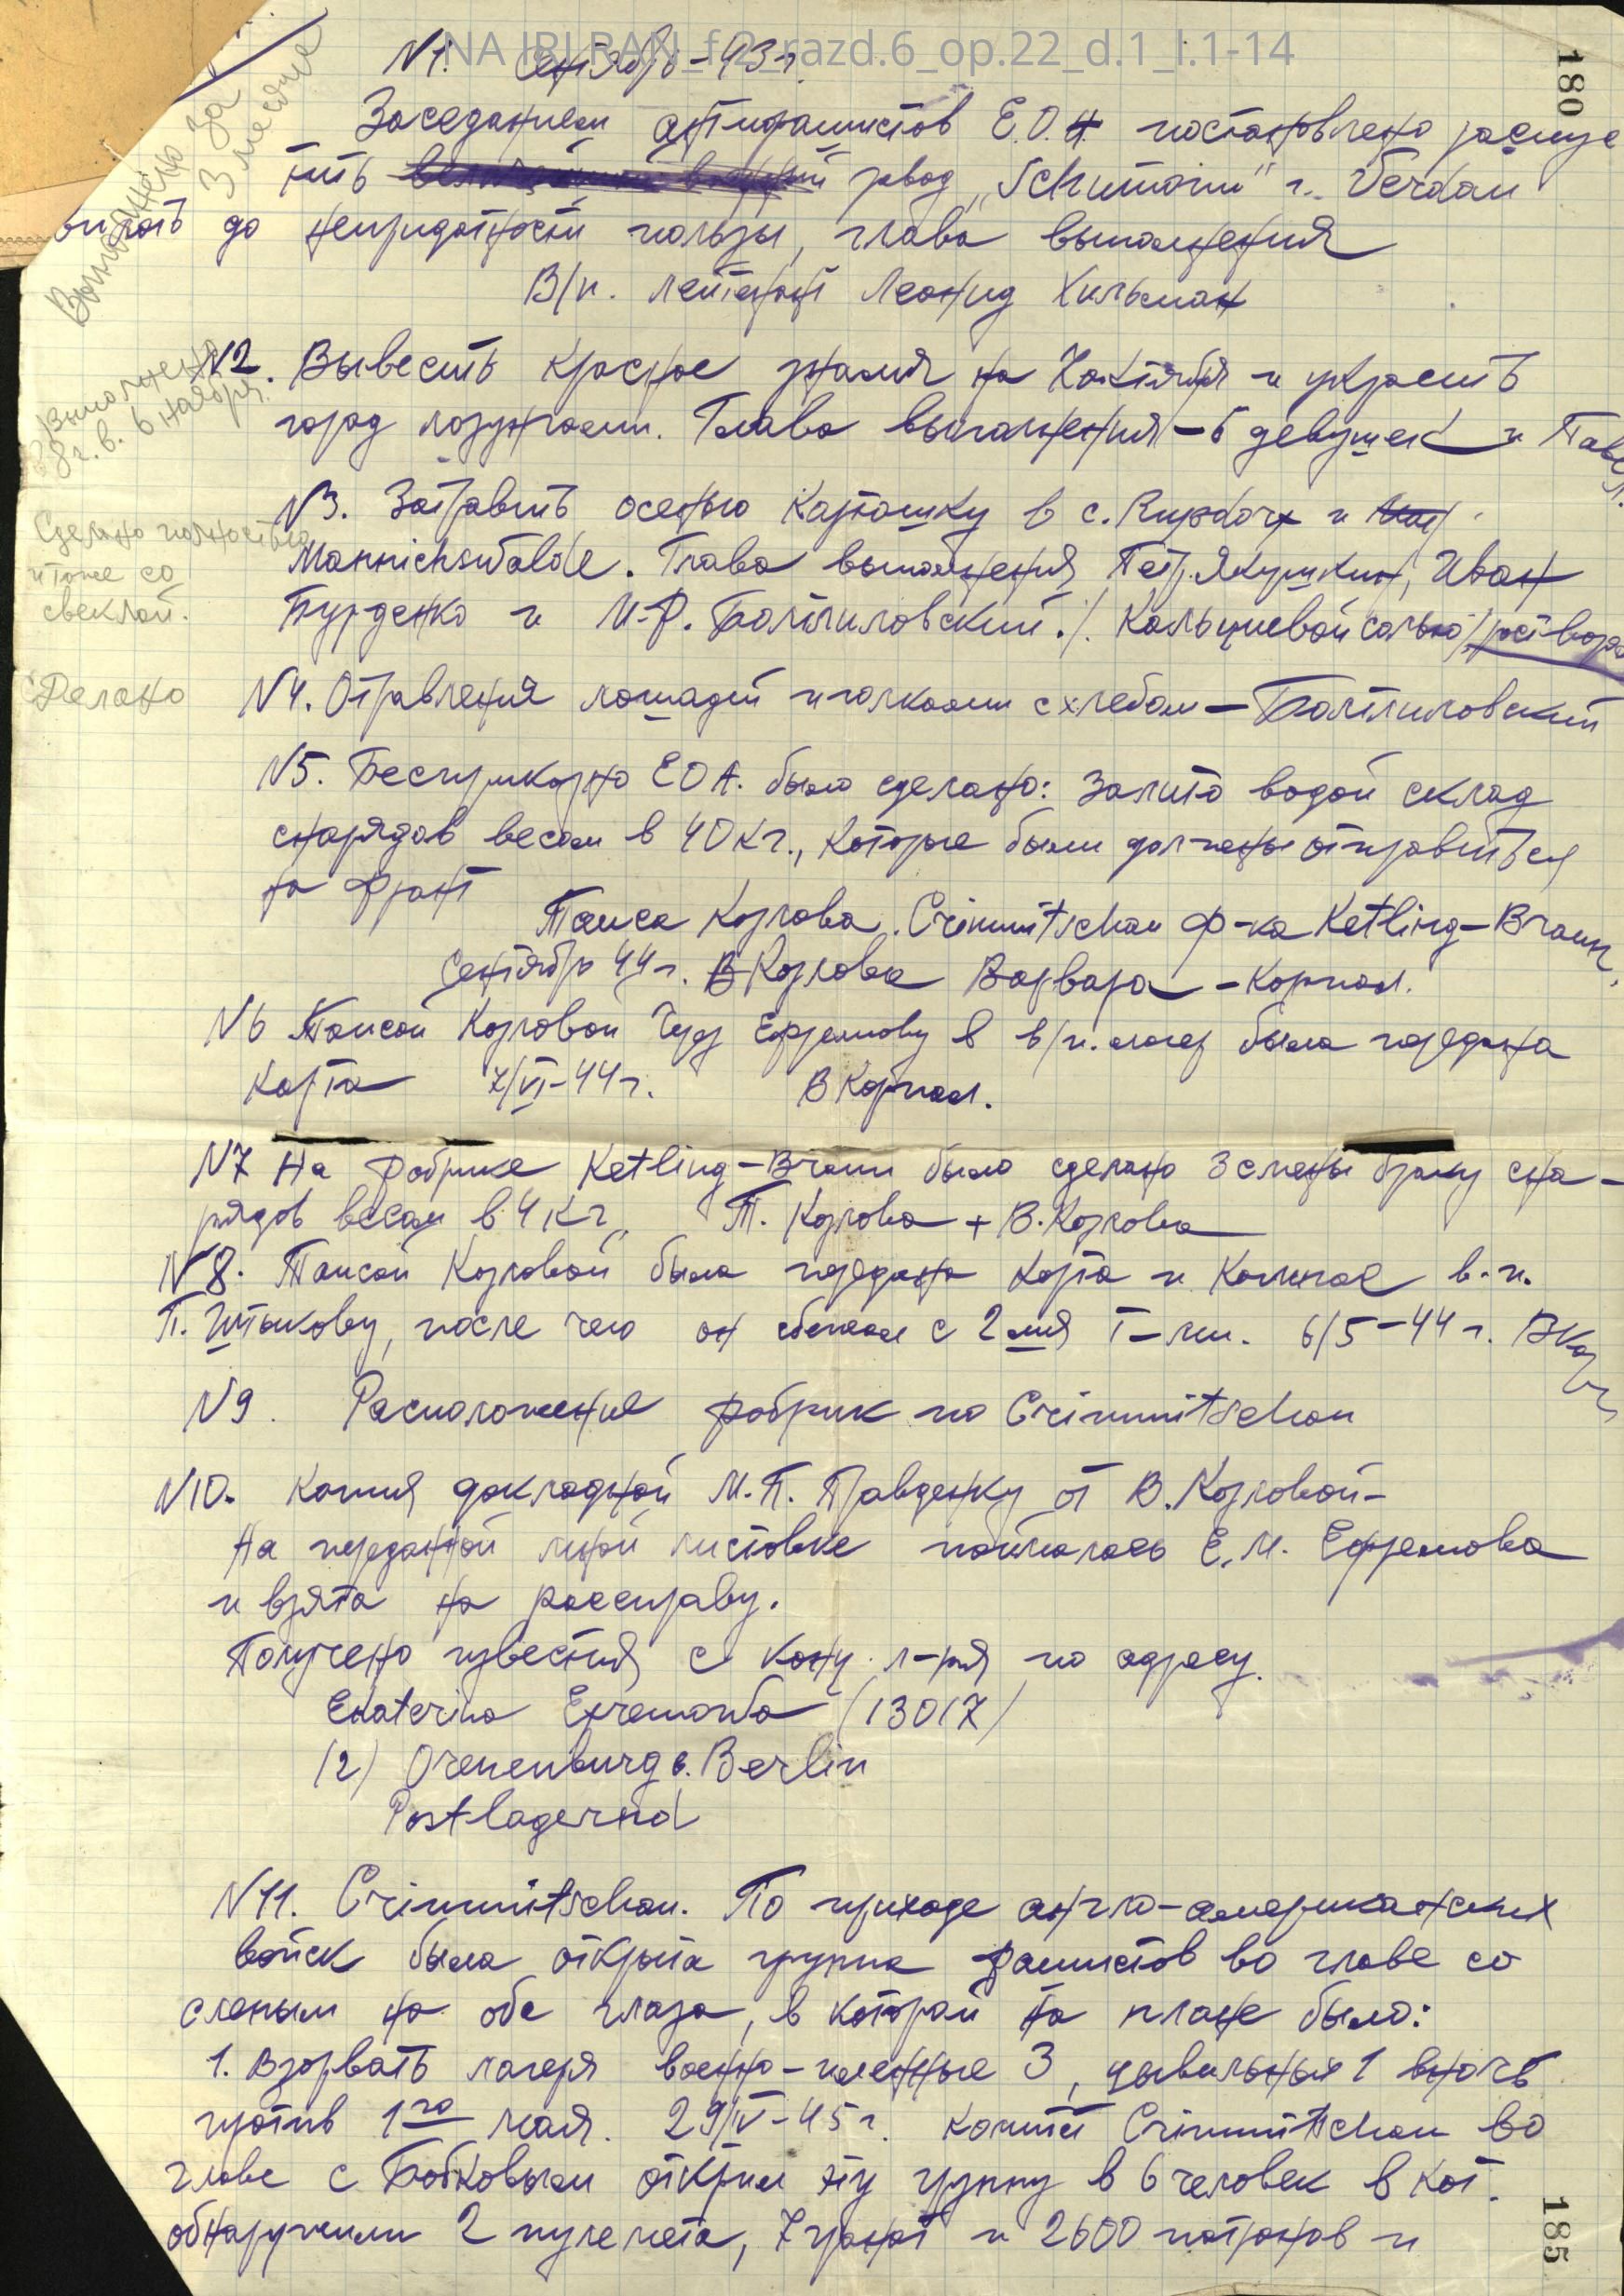 NA IRI RAN_f.2_razd.6_op.22_d.1_l.1-14
180
N1. Сентябрь-43г.
Заседанием антифашистов Е.О.А. постановлено
завод „Schumann" г. Verdau
до непригодности пользы, глава выполнения
В/п. лейтенант Леонид Хильман
Выполнено за 3 месяца
N2. Вывесить красное знамя на 7 октября и украсить
город лозунгами. Глава выполнения - 5 девушек и Павел
Выполнено
8 г. в. 6 ноября.
N3. Затравить осенью картошку в с. Rupdorf и
Mannichswalde. Глава выполнения Петр. Якушкин, Иван
Бурденко и И.Ф. Болтиловский. /. Кальциевой солью/ раствора
Сделано полностью
и тоже со
свеклой.
N4. Отравления лошадей иголками с хлебом - Болтиловский
Сделано
N5. Беспрыкорно ЕОА. было сделано: Залито водой склад
снарядов весом в 40 кг., которые были должены отправиться
на фронт
Таиса Козлова. Crimmitschau ф-ка Ketling-Braun,
Сентябрь 44 г. В Козлова Варвара - Корпал.
N6 Таисой Козловой Ефремову в в/п. лагер была передана
карта 7/VI-44 г. В Корпал.
N7 На фабрике Ketling-Braun было сделано 3 смены браку сна-
рядов весом в 4 кг. Т. Козлова + В. Козлова
N8. Таисой Козловой была передана карта и компас в.п.
П. Штыкову, после чего он сбежал с 2 мя т-щи. 6/5-44 г. В Коз
N9. Расположение фабрик по Crimmitschau
N10. Копия докладной М.П. Правденку от В. Козловой-
На переданной мной листовке поймалась Е.М. Ефремова
и взята на расправу.
Получено известия с конц. л-ря по адресу.
Ekaterina Efremowa (13017)
(2) Orenenburg b. Berlin
Postlagernd
N11. Crimmitschau. По приходе англо-американских
войск была открыта группа фашистов во главе со
слепым на оба глаза, в которой на плане было:
1. Взорвать лагеря военно-пленные 3, цывильных 1 вночь
против 1го мая. 29/IV-45 г. Комитет Crimmitschau во
главе с Бобковым открыл эту группу в 6 человек в кот.
обнаружили 2 пулемета, 7 гранат и 2600 патронов и
185